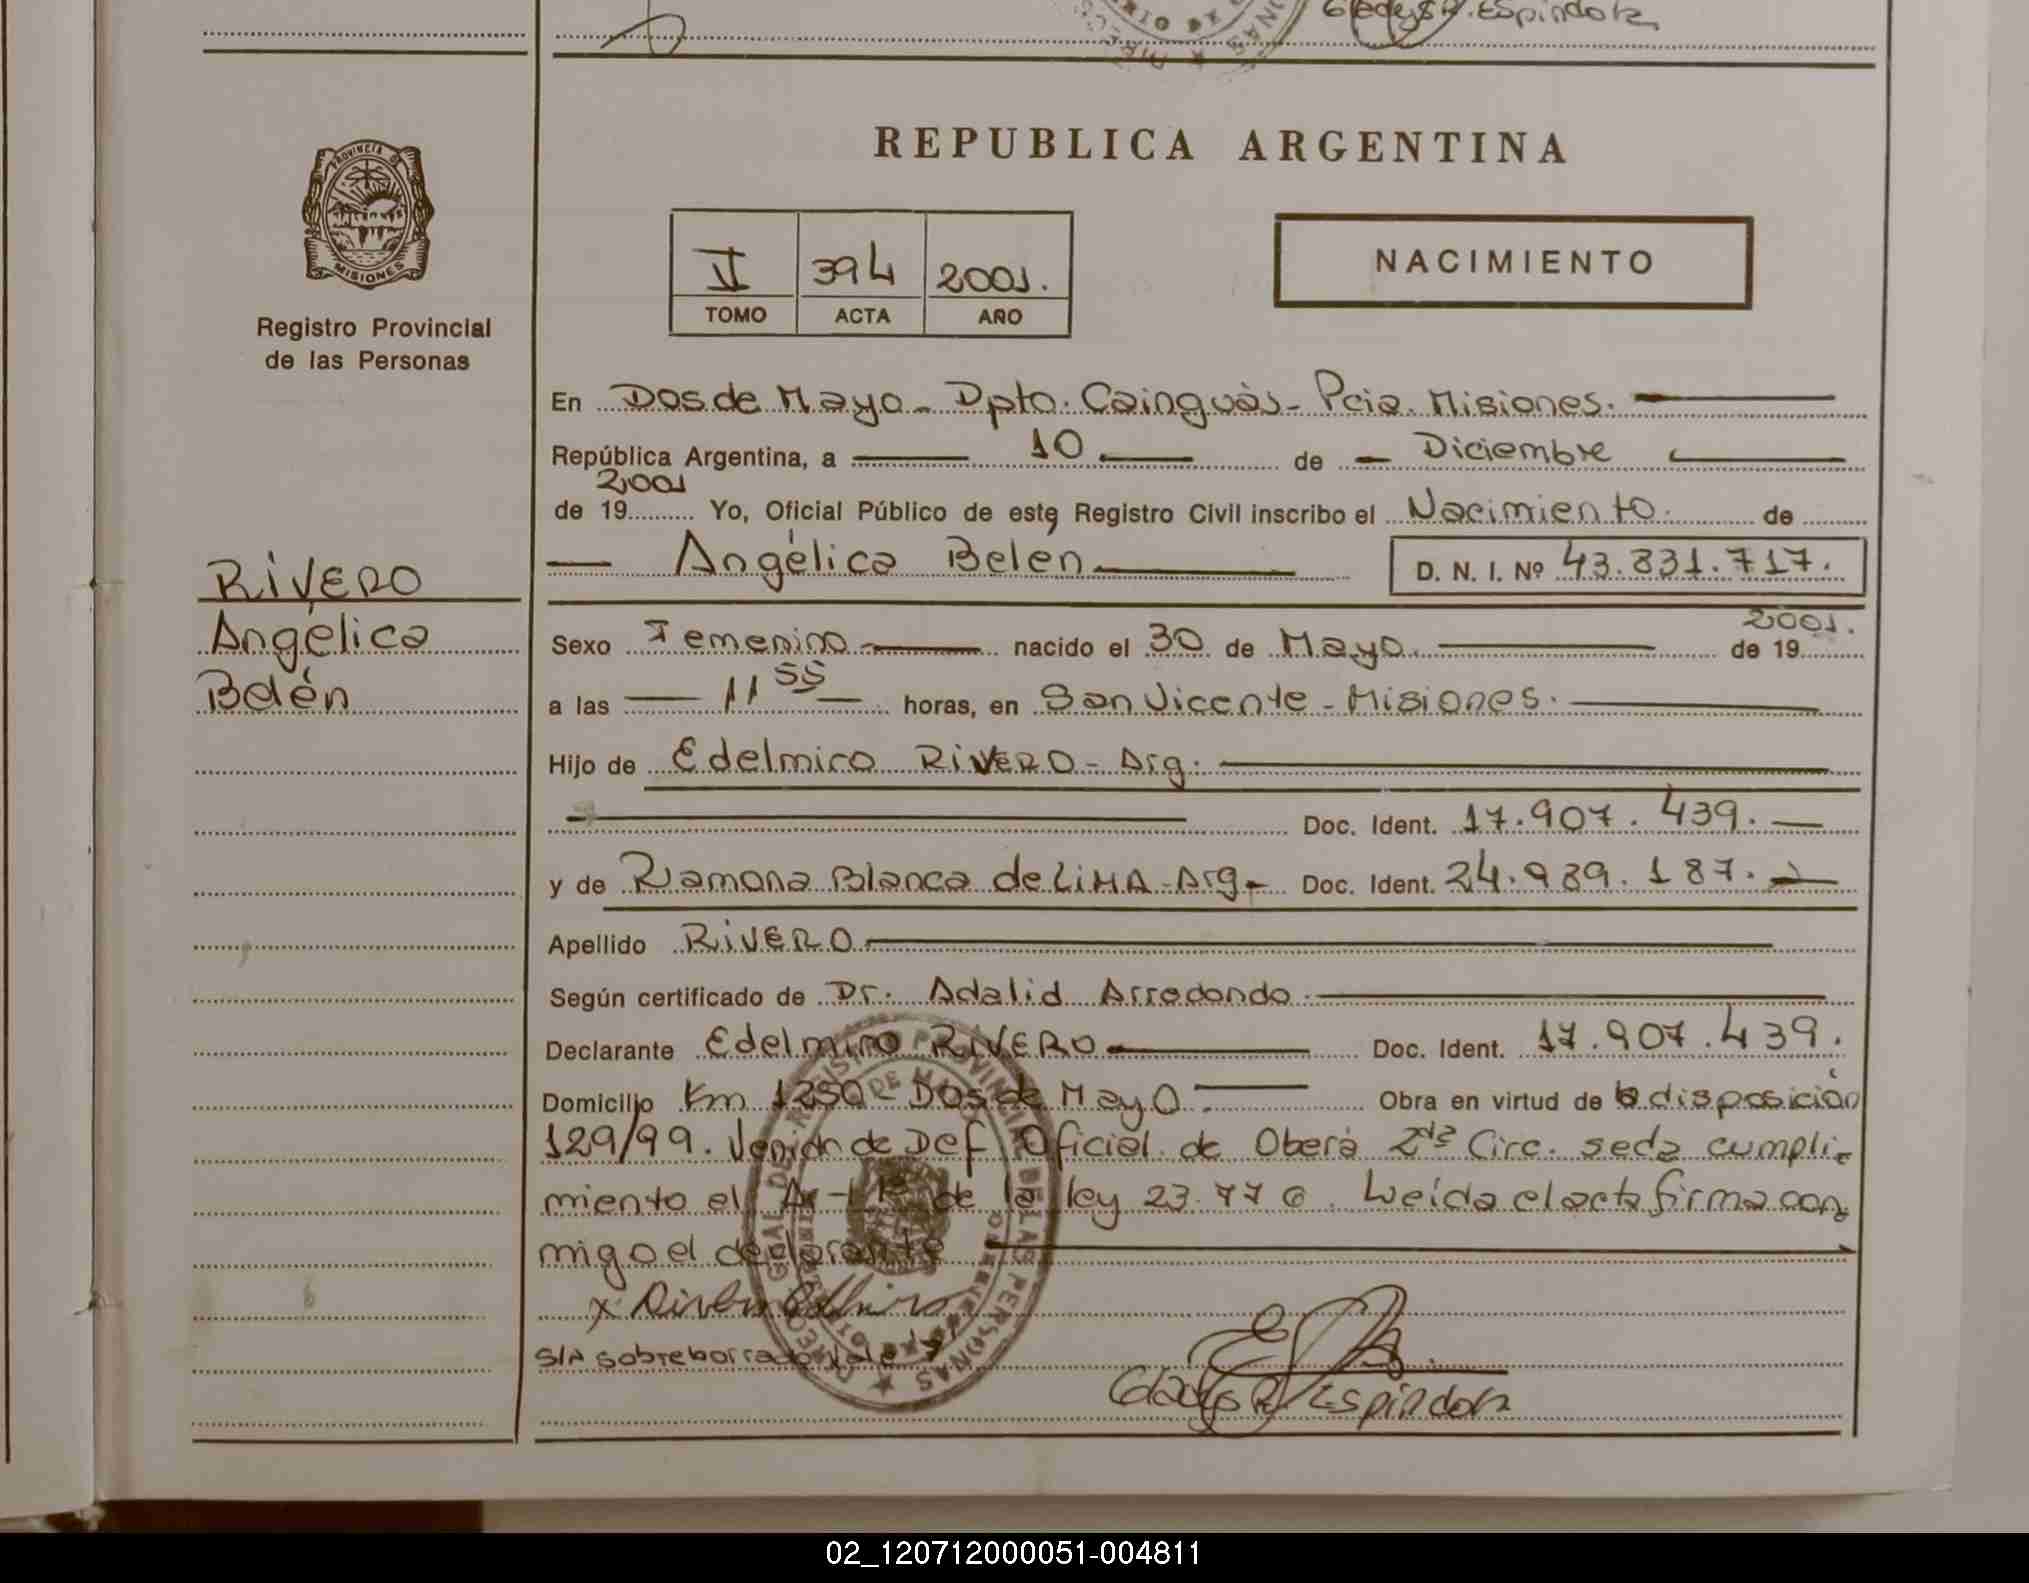 Gladys R. Espindola
REPUBLICA ARGENTINA
PROVINCIA DE
MISIONES
Registro Provincial
de las Personas
II 394 2001.
TOMO ACTA AÑO
NACIMIENTO
En Dos de Mayo - Dpto. Cainguàs - Pcia. Misiones.
República Argentina, a 10 de Diciembre
2001
de 19 Yo, Oficial Público de este Registro Civil inscribo el Nacimiento de
Angélica Belén
D. N. I. Nº 43.831.717.
RIVERO
Angélica
Belén
Sexo Femenino nacido el 30 de Mayo de 19 2001.
a las 11 55 horas, en San Vicente - Misiones.
Hijo de Edelmiro RIVERO - Arg.
Doc. Ident. 17.907.439.
y de Ramona Blanca de LIMA - Arg - Doc. Ident. 24.989.187.
Apellido RIVERO
Según certificado de Dr. Adalid Arredondo
Declarante Edelmiro RIVERO Doc. Ident. 17.907.439.
Domicilio Km 1250 - Dos de Mayo. Obra en virtud de la disposición
129/99. Venia de Def Oficial de Oberá 2da Circ. se da cumpli-
miento el Ar-1º de la ley 23.776. Leída el acta firma con-
migo el declarante
S/A sobreborrado Vale
Gladys R. Espindola
02_120712000051-004811